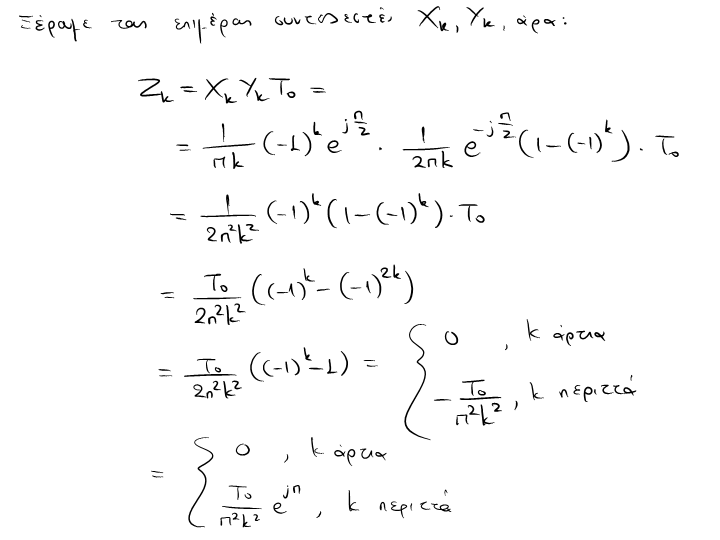 Ξέραμε τους επιμέρους συντελεστές X_k, Y_k, άρα:
Z_k = X_k Y_k T_0 =
= \frac{1}{πk} (-1)^k e^{j\frac{π}{2}} · \frac{1}{2πk} e^{-j\frac{π}{2}} (1-(-1)^k) · T_0
= \frac{1}{2π^2k^2} (-1)^k (1-(-1)^k) · T_0
= \frac{T_0}{2π^2k^2} ((-1)^k - (-1)^{2k})
= \frac{T_0}{2π^2k^2} ((-1)^k - 1) = { 0 , k άρτια
-\frac{T_0}{π^2k^2} , k περιττά
= { 0 , k άρτια
\frac{T_0}{π^2k^2} e^{jπ} , k περιττά